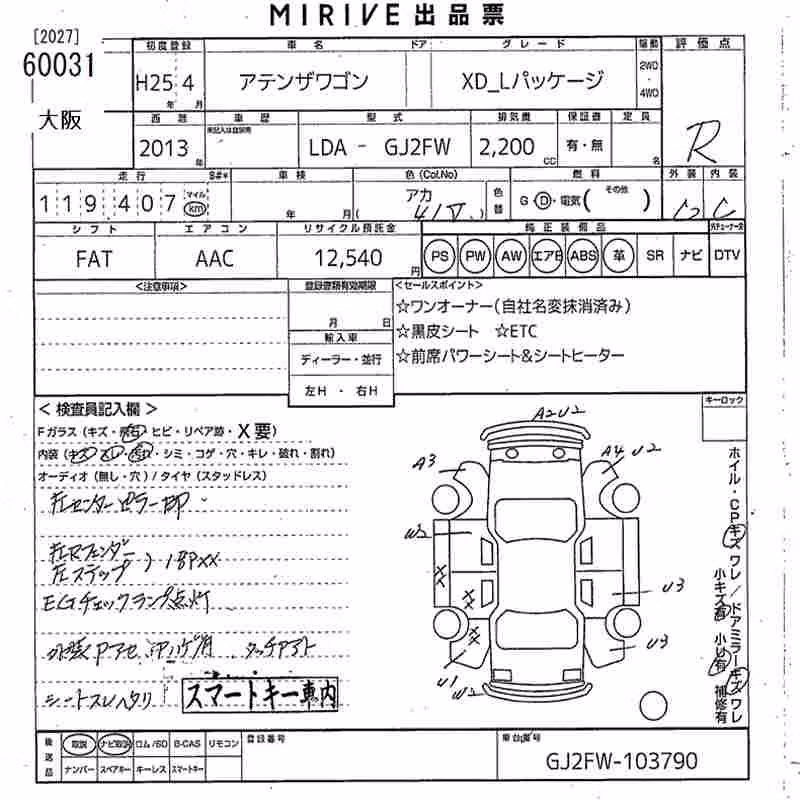 MIRIVE出品票
[2027]
60031
大阪
初度登録 車名 ドア グレード 駆動 評価点
H25 4 年 月 アテンザワゴン XD_Lパッケージ 2WD ・ 4WD
R
西暦 車歴 型式 排気量 保証書 定員
2013 年 LDA - GJ2FW 2,200 CC 有・無 名
走行 車検 色(Col.No) 燃料 外装 内装
119,407 マイル km 年 月 アカ 41V 色替 G・D・電気( その他 ) C C
シフト エアコン リサイクル預託金 純正装備品
FAT AAC 12,540 円 PS PW AW エアB ABS 革 SR ナビ DTV
<注意事項> 登録書類有効期限 <セールスポイント>
月 日
輸入車
ディーラー・並行
左H ・ 右H
☆ワンオーナー(自社名変抹消済み)
☆黒皮シート ☆ETC
☆前席パワーシート&シートヒーター
<検査員記入欄>
キーロック
Fガラス(キズ・飛石・ヒビ・リペア跡・X要)
内装(キズ・スレ・汚れ・シミ・コゲ・穴・キレ・破れ・割れ)
オーディオ(無し・穴)/タイヤ(スタッドレス)
左センターピラー
左Rフェンダー
左ステップ
EGチェックランプ点灯
シートスレ
スマートキー車内
A2 U2
A3
A4 U2
U3
U3
U1
XX
XX
XX
ホイル・CPキズ ワレ/ドアミラーキズ ワレ
小キズ有 小U有 補修有
後送品 取説 ナビ取説 ロム/SD B-CAS リモコン 登録番号 車台番号
ナンバー スペアキー キーレス スマートキー
GJ2FW-103790